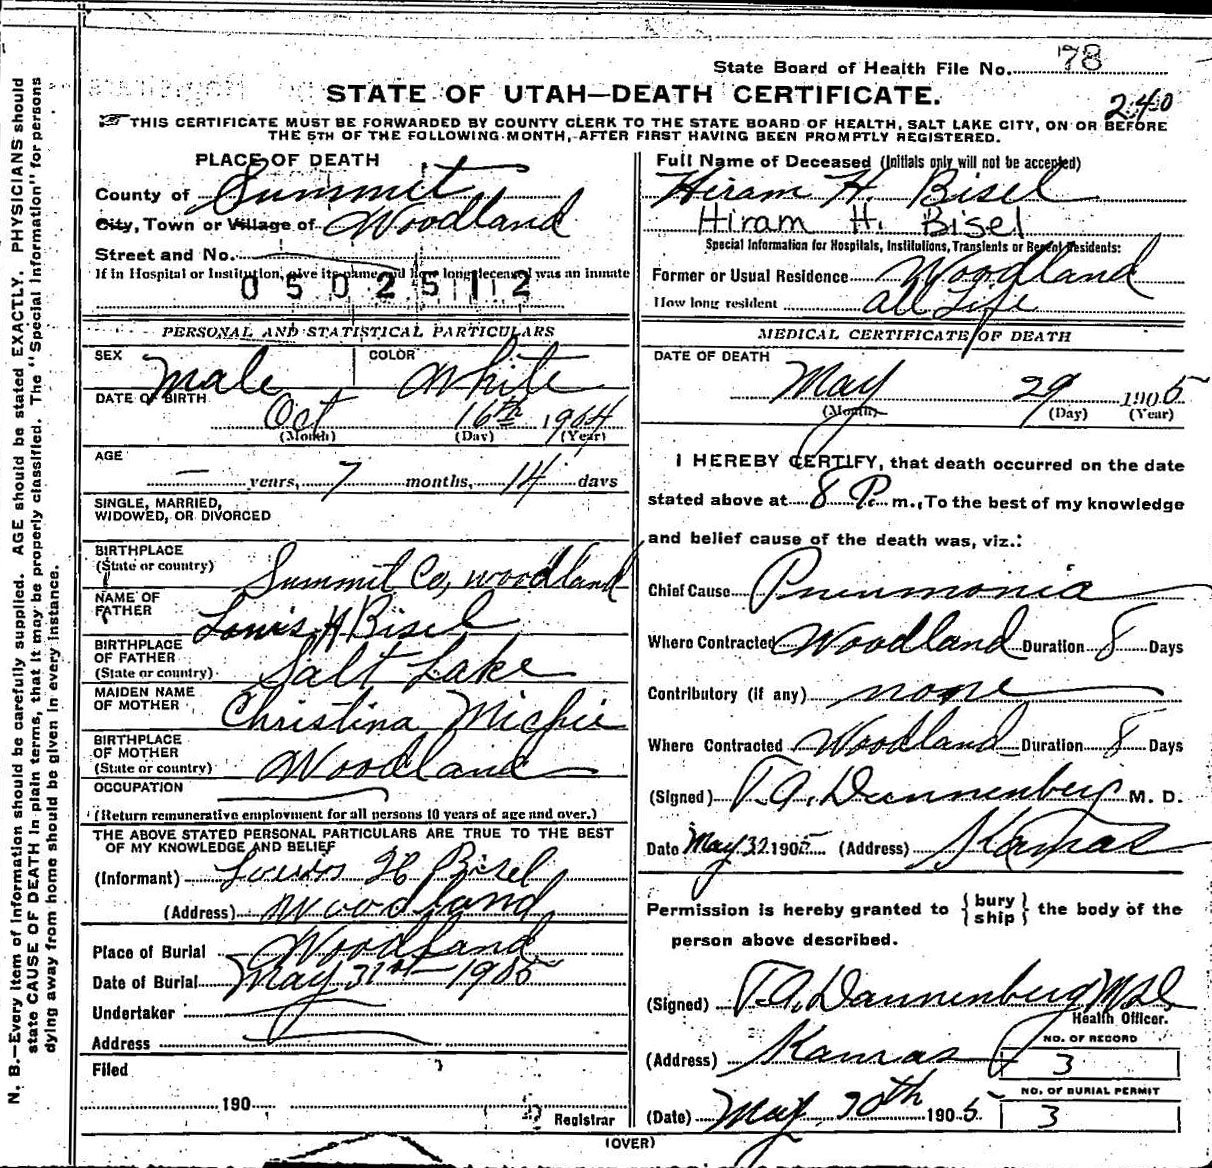 State Board of Health File No. 78
STATE OF UTAH—DEATH CERTIFICATE.
240
THIS CERTIFICATE MUST BE FORWARDED BY COUNTY CLERK TO THE STATE BOARD OF HEALTH, SALT LAKE CITY, ON OR BEFORE
THE 5TH OF THE FOLLOWING MONTH, AFTER FIRST HAVING BEEN PROMPTLY REGISTERED.
N. B.—Every item of information should be carefully supplied. AGE should be stated EXACTLY. PHYSICIANS should
state CAUSE OF DEATH in plain terms, that it may be properly classified. The "Special Information" for persons
dying away from home should be given in every instance.
PLACE OF DEATH
County of Summit
City, Town or Village of Woodland
Street and No.
If in Hospital or Institution, give its name and how long deceased was an inmate
0502512
PERSONAL AND STATISTICAL PARTICULARS
SEX Male COLOR White
DATE OF BIRTH
Oct 16th 1904
(Month) (Day) (Year)
AGE
— years, 7 months, 14 days
SINGLE, MARRIED,
WIDOWED, OR DIVORCED
BIRTHPLACE
(State or country) Summit Co, Woodland
NAME OF
FATHER Louis H Bisel
BIRTHPLACE
OF FATHER
(State or country) Salt Lake
MAIDEN NAME
OF MOTHER Christina Michie
BIRTHPLACE
OF MOTHER
(State or country) Woodland
OCCUPATION
(Return remunerative employment for all persons 10 years of age and over.)
THE ABOVE STATED PERSONAL PARTICULARS ARE TRUE TO THE BEST
OF MY KNOWLEDGE AND BELIEF
(Informant) Louis H Bisel
(Address) Woodland
Place of Burial Woodland
Date of Burial May 31st 1905
Undertaker
Address
Filed
190
Registrar
Full Name of Deceased (Initials only will not be accepted)
Hiram H. Bisel
Hiram H. Bisel
Special Information for Hospitals, Institutions, Transients or Recent Residents:
Former or Usual Residence Woodland
How long resident all Life
MEDICAL CERTIFICATE OF DEATH
DATE OF DEATH
May 29 1905
(Month) (Day) (Year)
I HEREBY CERTIFY, that death occurred on the date
stated above at 8 P. m., To the best of my knowledge
and belief cause of the death was, viz.:
Chief Cause Pneumonia
Where Contracted Woodland Duration 8 Days
Contributory (if any) none
Where Contracted Woodland Duration 8 Days
(Signed) T. A. Dannenberg M. D.
Date May 1905 (Address) Kamas
Permission is hereby granted to {bury ship} the body of the
person above described.
(Signed) T. A. Dannenberg MD
Health Officer.
(Address) Kamas
NO. OF RECORD
3
NO. OF BURIAL PERMIT
3
(Date) May 30th 1905
(OVER)